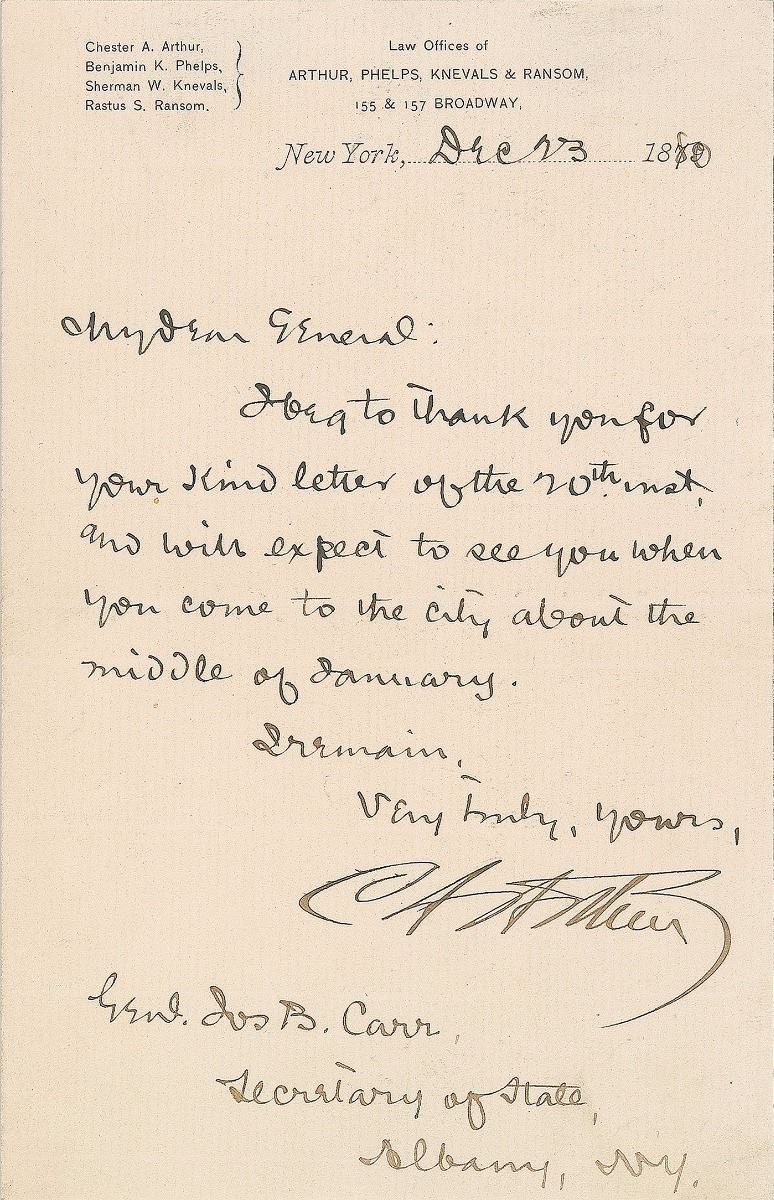 Chester A. Arthur,
Benjamin K. Phelps,
Sherman W. Knevals,
Rastus S. Ransom.
Law Offices of
ARTHUR, PHELPS, KNEVALS & RANSOM,
155 & 157 BROADWAY,
New York, Dec 23 1880
My dear General:
I beg to thank you for
your kind letter of the 20th inst,
and will expect to see you when
you come to the city about the
middle of January.
I remain,
Very truly, yours,
C A Arthur
Genl. Jos B. Carr,
Secretary of State,
Albany, NY.